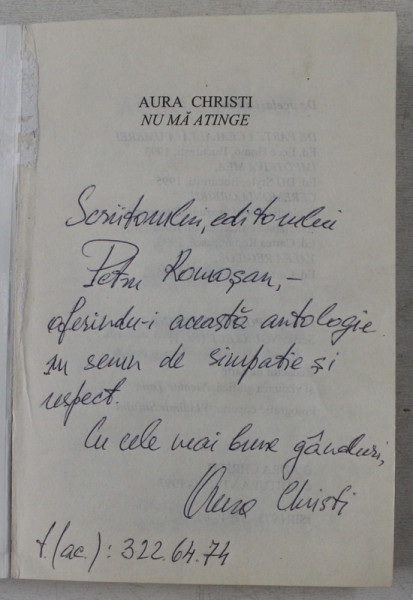 AURA CHRISTI
NU MĂ ATINGE
Scriitorului, editorului
Petru Romoşan, –
oferindu-i această antologie
în semn de simpatie şi
respect.
Cu cele mai bune gânduri,
Aura Christi
t. (ac.) : 322.64.74